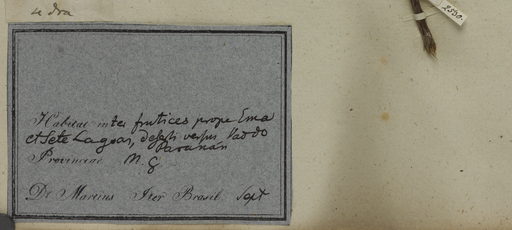 Habitat inter frutices prope Ema
et Sete Lagoas, deserti versus Vao do
Paranan
Provinciae M. G
Dr Martius Iter Brasil. Sept